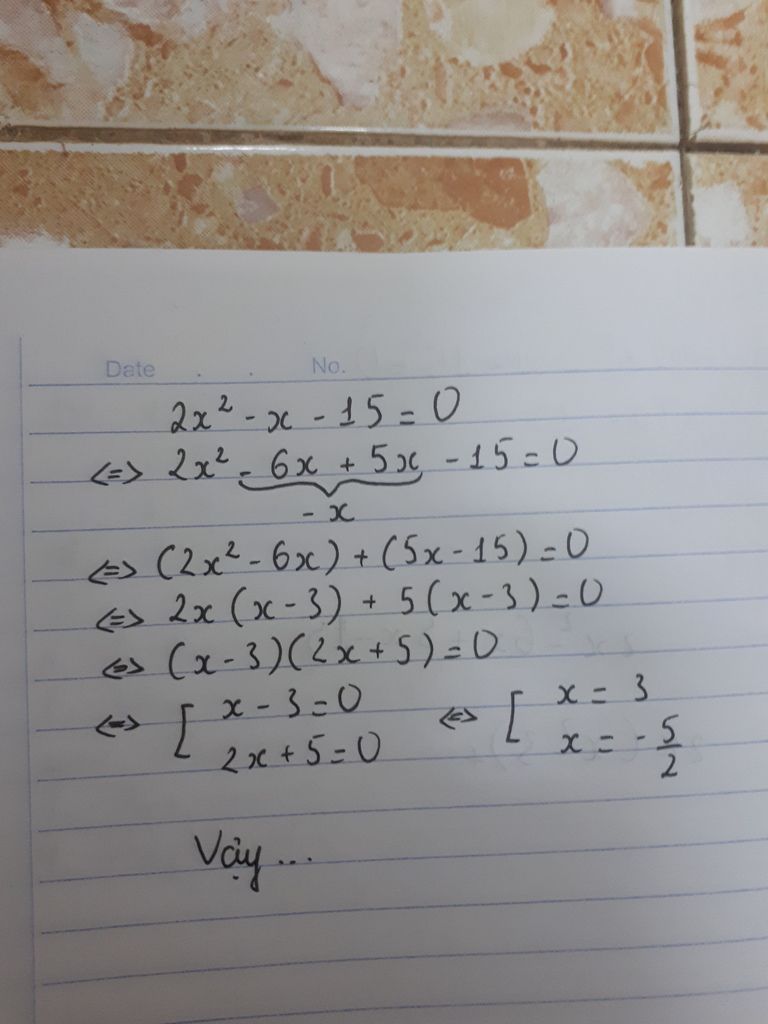 Date . . No.
2x² - x - 15 = 0
<=> 2x² - 6x + 5x - 15 = 0
- x
<=> (2x² - 6x) + (5x - 15) = 0
<=> 2x (x - 3) + 5 (x - 3) = 0
<=> (x - 3)(2x + 5) = 0
<=> [ x - 3 = 0 <=> [ x = 3
2x + 5 = 0 x = - 5/2
Vậy ...